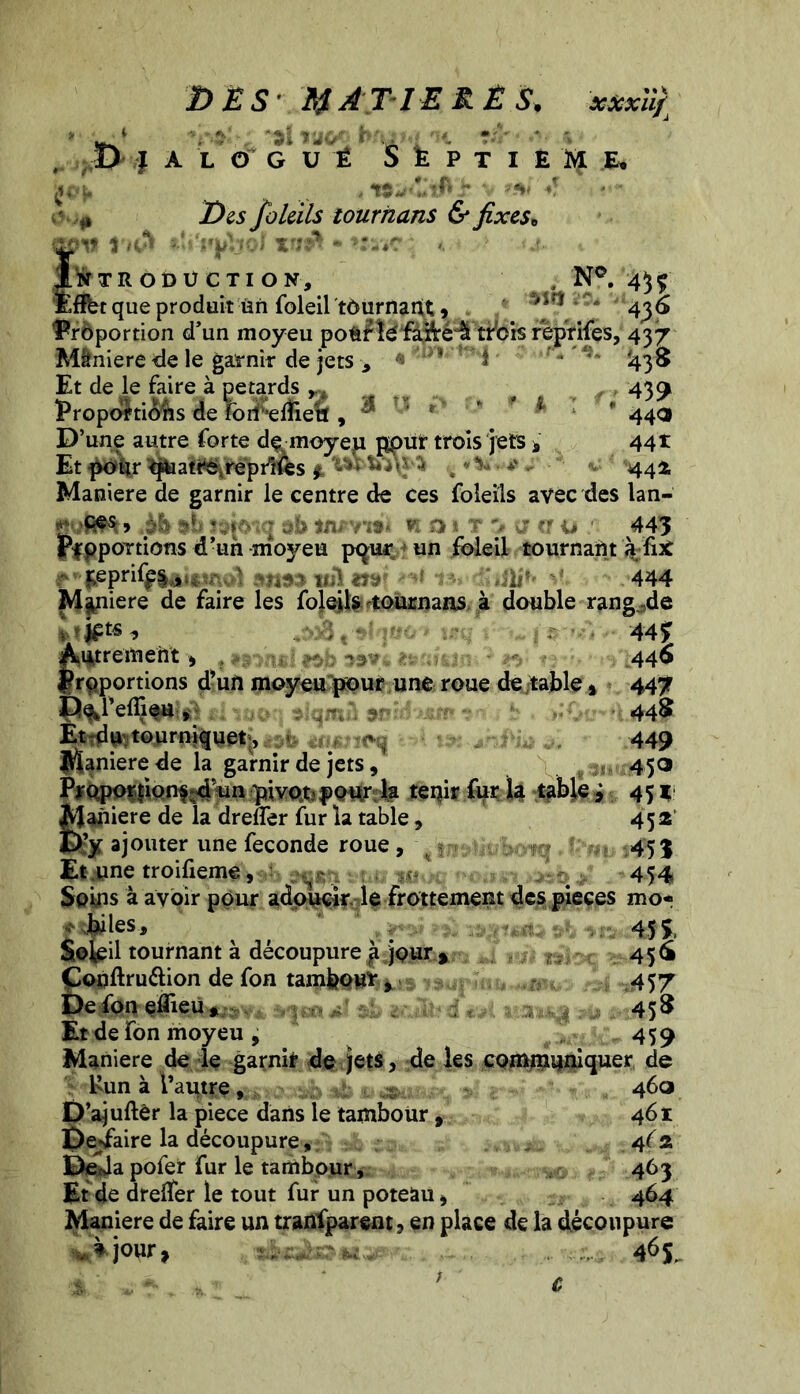 DES MATIERES. xxxiij
DIALOGUE SEPTIEME.
Des soleils tournans & fixes.
INTRODUCTION, N°. 435
Effet que produit un soleil tournant, 436
Proportion d'un moyeu pour le faire à trois reprises, 437
Maniere de le garnir de jets, 438
Et de le faire à petards, 439
Proportions de son essieu, 440
D'une autre sorte de moyeu pour trois jets, 441
Et pour quatre reprises, 442
Maniere de garnir le centre de ces soleils avec des lan-
ces, 443
Proportions d'un moyeu pour un soleil tournant à six
reprises, 444
Maniere de faire les soleils tournans à double rang de
jets, 445
Autrement, 446
Proportions d'un moyeu pour une roue de table, 447
De l'essieu, 448
Et du tourniquet, 449
Maniere de la garnir de jets, 450
Proportions d'un pivot pour la tenir sur la table, 451
Maniere de la dresser sur la table, 452
D'y ajouter une seconde roue, 453
Et une troisieme, 454
Soins à avoir pour adoucir le frottement des pieces mo-
biles, 455
Soleil tournant à découpure à jour, 456
Construction de son tambour, 457
De son essieu, 458
Et de son moyeu, 459
Maniere de le garnir de jets, de les communiquer de
l'un à l'autre, 460
D'ajustêr la piece dans le tambour, 461
De faire la découpure, 462
De la poser sur le tambour, 463
Et de dresser le tout sur un poteau, 464
Maniere de faire un transparent, en place de la découpure
à jour, 465
c